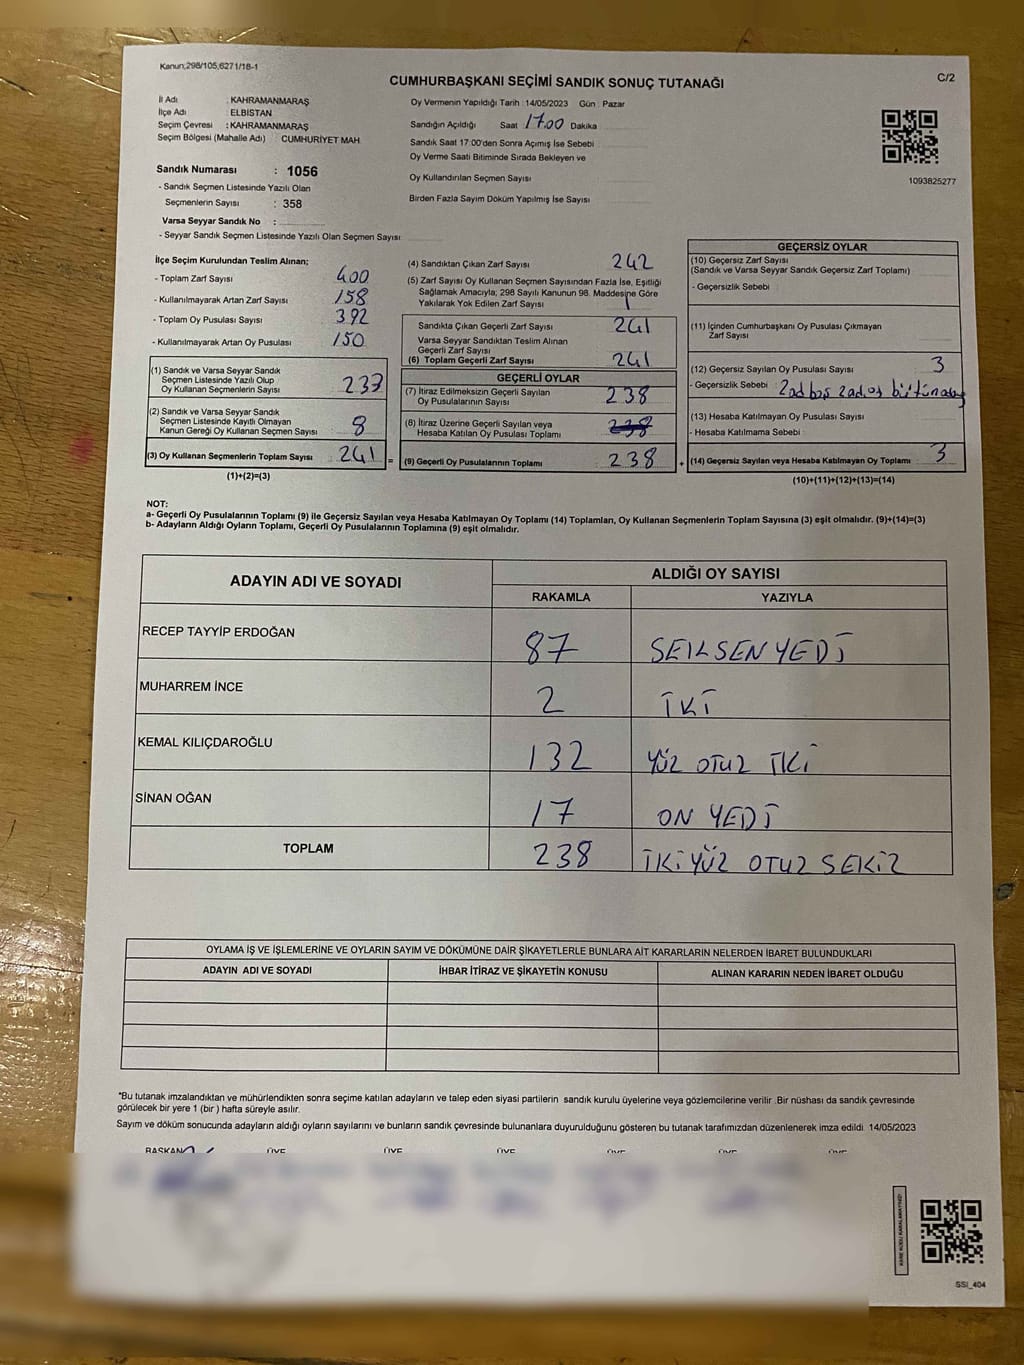 Kanun;298/105,6271/18-1
CUMHURBAŞKANI SEÇİMİ SANDIK SONUÇ TUTANAĞI
C/2
İl Adı : KAHRAMANMARAŞ
İlçe Adı : ELBİSTAN
Seçim Çevresi : KAHRAMANMARAŞ
Seçim Bölgesi (Mahalle Adı) : CUMHURİYET MAH.
Sandık Numarası : 1056
- Sandık Seçmen Listesinde Yazılı Olan
Seçmenlerin Sayısı : 358
Varsa Seyyar Sandık No :
- Seyyar Sandık Seçmen Listesinde Yazılı Olan Seçmen Sayısı
Oy Vermenin Yapıldığı Tarih : 14/05/2023 Gün : Pazar
Sandığın Açıldığı Saat 17.00 Dakika
Sandık Saat 17:00'den Sonra Açımış İse Sebebi
Oy Verme Saati Bitiminde Sırada Bekleyen ve
Oy Kullandırılan Seçmen Sayısı
Birden Fazla Sayım Döküm Yapılmış İse Sayısı
1093825277
İlçe Seçim Kurulundan Teslim Alınan;
- Toplam Zarf Sayısı 400
- Kullanılmayarak Artan Zarf Sayısı 158
- Toplam Oy Pusulası Sayısı 392
- Kullanılmayarak Artan Oy Pusulası 150
(1) Sandık ve Varsa Seyyar Sandık
Seçmen Listesinde Yazılı Olup
Oy Kullanan Seçmenlerin Sayısı 233
(2) Sandık ve Varsa Seyyar Sandık
Seçmen Listesinde Kayıtlı Olmayan
Kanun Gereği Oy Kullanan Seçmen Sayısı 8
(3) Oy Kullanan Seçmenlerin Toplam Sayısı 241 =
(1)+(2)=(3)
(4) Sandıktan Çıkan Zarf Sayısı 242
(5) Zarf Sayısı Oy Kullanan Seçmen Sayısından Fazla İse, Eşitliği
Sağlamak Amacıyla; 298 Sayılı Kanunun 98. Maddesine Göre
Yakılarak Yok Edilen Zarf Sayısı 1
Sandıkta Çıkan Geçerli Zarf Sayısı 241
Varsa Seyyar Sandıktan Teslim Alınan
Geçerli Zarf Sayısı
(6) Toplam Geçerli Zarf Sayısı 241
GEÇERLİ OYLAR
(7) İtiraz Edilmeksizin Geçerli Sayılan
Oy Pusulalarının Sayısı 238
(8) İtiraz Üzerine Geçerli Sayılan veya
Hesaba Katılan Oy Pusulası Toplamı 238
(9) Geçerli Oy Pusulalarının Toplamı 238 +
GEÇERSİZ OYLAR
(10) Geçersiz Zarf Sayısı
(Sandık ve Varsa Seyyar Sandık Geçersiz Zarf Toplamı)
- Geçersizlik Sebebi :
(11) İçinden Cumhurbaşkanı Oy Pusulası Çıkmayan
Zarf Sayısı
(12) Geçersiz Sayılan Oy Pusulası Sayısı 3
- Geçersizlik Sebebi :
(13) Hesaba Katılmayan Oy Pusulası Sayısı
- Hesaba Katılmama Sebebi :
(14) Geçersiz Sayılan veya Hesaba Katılmayan Oy Toplamı 3
(10)+(11)+(12)+(13)=(14)
NOT:
a- Geçerli Oy Pusulalarının Toplamı (9) ile Geçersiz Sayılan veya Hesaba Katılmayan Oy Toplamı (14) Toplamları, Oy Kullanan Seçmenlerin Toplam Sayısına (3) eşit olmalıdır. (9)+(14)=(3)
b- Adayların Aldığı Oyların Toplamı, Geçerli Oy Pusulalarının Toplamına (9) eşit olmalıdır.
ADAYIN ADI VE SOYADI ALDIĞI OY SAYISI
RAKAMLA YAZIYLA
RECEP TAYYİP ERDOĞAN 87 SEILSEN YEDİ
MUHARREM İNCE 2 İKİ
KEMAL KILIÇDAROĞLU 132 YÜZ OTUZ İKİ
SİNAN OĞAN 17 ON YEDİ
TOPLAM 238 İKİ YÜZ OTUZ SEKİZ
OYLAMA İŞ VE İŞLEMLERİNE VE OYLARIN SAYIM VE DÖKÜMÜNE DAİR ŞİKAYETLERLE BUNLARA AİT KARARLARIN NELERDEN İBARET BULUNDUKLARI
ADAYIN ADI VE SOYADI İHBAR İTİRAZ VE ŞİKAYETİN KONUSU ALINAN KARARIN NEDEN İBARET OLDUĞU
*Bu tutanak imzalandıktan ve mühürlendikten sonra seçime katılan adayların ve talep eden siyasi partilerin sandık kurulu üyelerine veya gözlemcilerine verilir .Bir nüshası da sandık çevresinde
görülecek bir yere 1 (bir ) hafta süreyle asılır.
Sayım ve döküm sonucunda adayların aldığı oyların sayılarını ve bunların sandık çevresinde bulunanlara duyurulduğunu gösteren bu tutanak tarafımızdan düzenlenerek imza edildi. 14/05/2023
BAŞKAN ÜYE ÜYE ÜYE ÜYE ÜYE ÜYE
KARE KODU KARALAMAYINIZ!
SSI_404